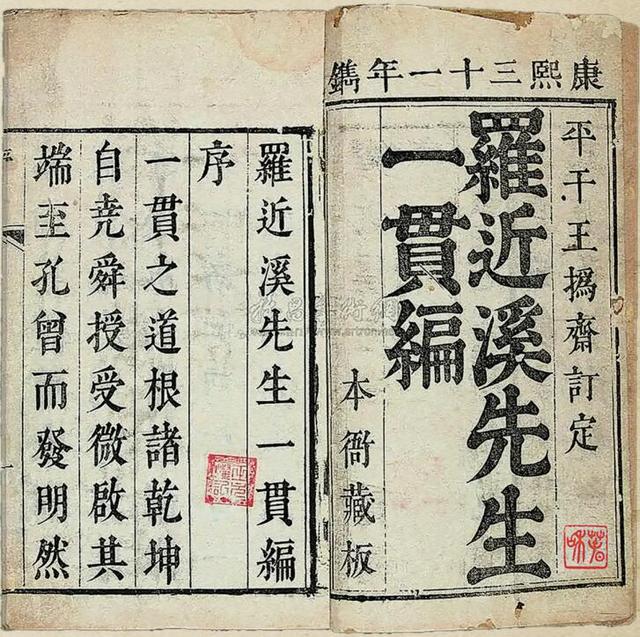 康熙三十一年鐫
平干王撝齋訂定
羅近溪先生
一貫編
本衙藏板
羅近溪先生一貫編
序
一貫之道根諸乾坤
自堯舜授受微啟其
端至孔曾而發明然